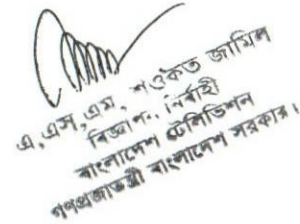 এ,এস,এম, শওকত জামিল
বিজ্ঞাপন, নির্বাহী
বাংলাদেশ টেলিভিশন
গণপ্রজাতন্ত্রী বাংলাদেশ সরকার।